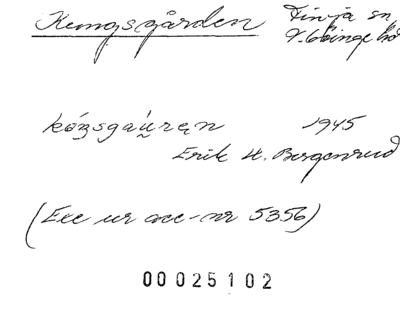 Kungsgården Finja sn
V. Göinge hd
kóŋsgáu̯rę̣n 1945
Erik H. Bergenrud
(Exc ur acc-nr 5356)
00025102